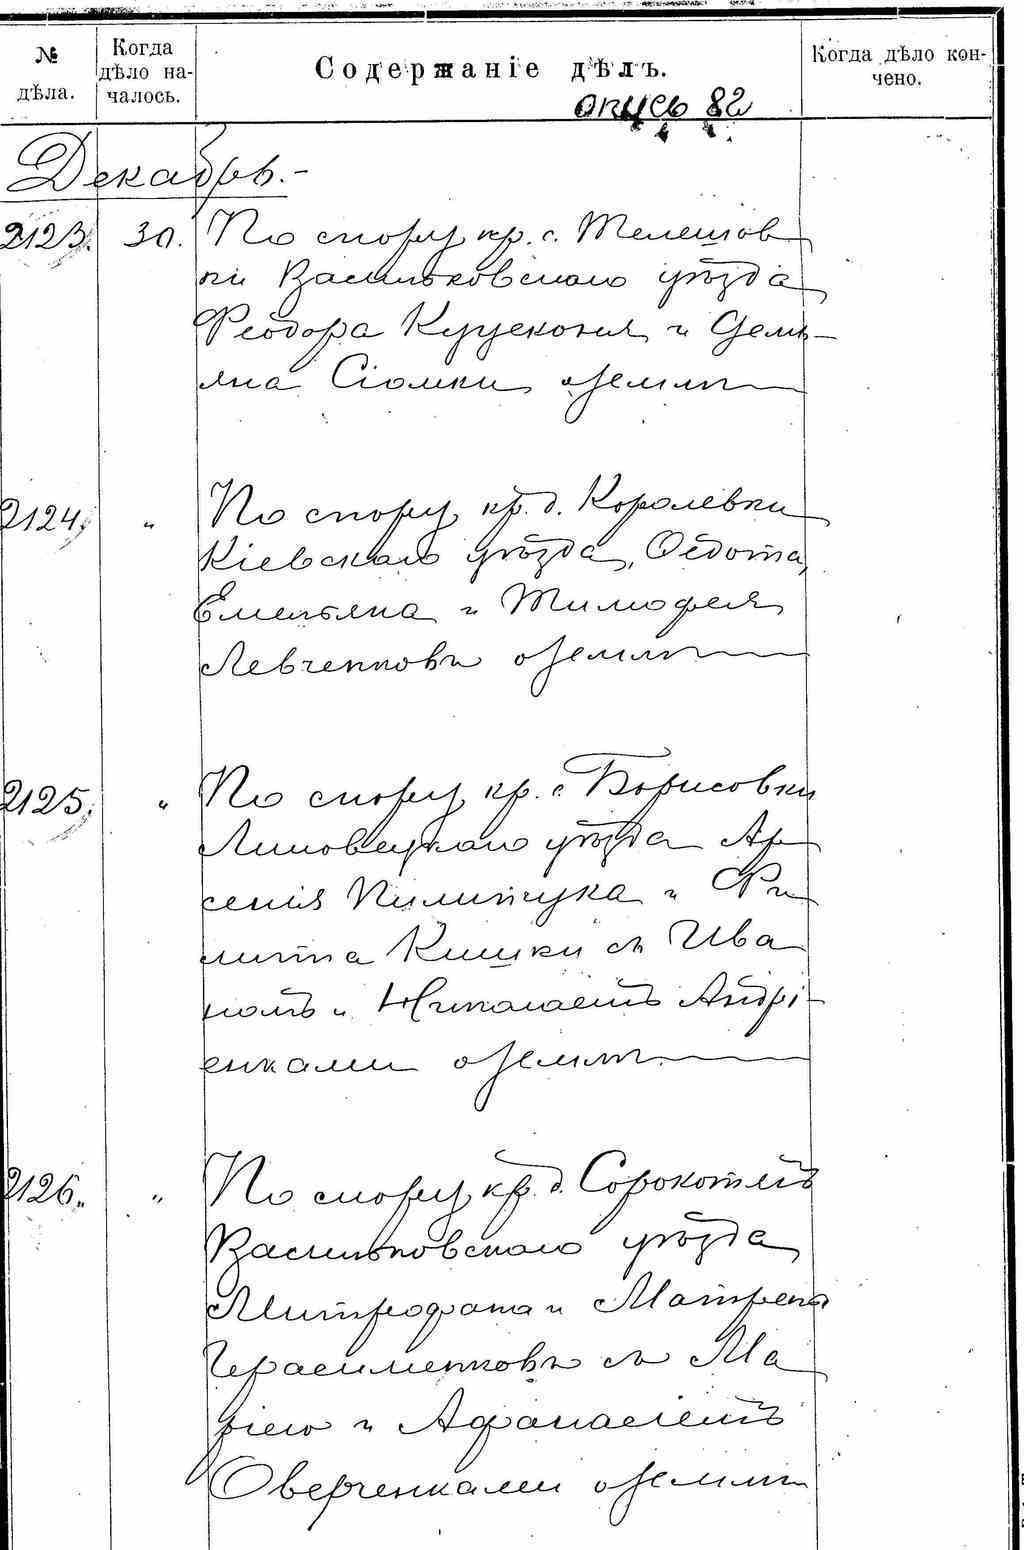 № дѣла.
Когда дѣло началось.
Содержаніе дѣлъ.
Когда дѣло кончено.
опись 82
Декабрь.-
2123. 30. По спору кр. с. Телешов
ки Васильковскаго уѣзда
Феодора Куцеконя и Демь-
яна Сіомки о землѣ
2124. " По спору кр. д. Королевки
Кіевскаго уѣзда, Ѳедота,
Емельяна и Тимофея
Левченковъ о землѣ
2125. " По спору кр. с. Борисовки
Липовецкаго уѣзда Ар
сенія Пилипчука и Фи
липпа Кишки съ Ива
номъ и Николаемъ Андрі-
енками о землѣ.
2126. " По спору кр. д. Сорокотягъ
Васильковскаго уѣзда
Митрофана и Матрены
Герасименковъ съ Ма
ріею и Афанасіемъ
Оверченками о землѣ